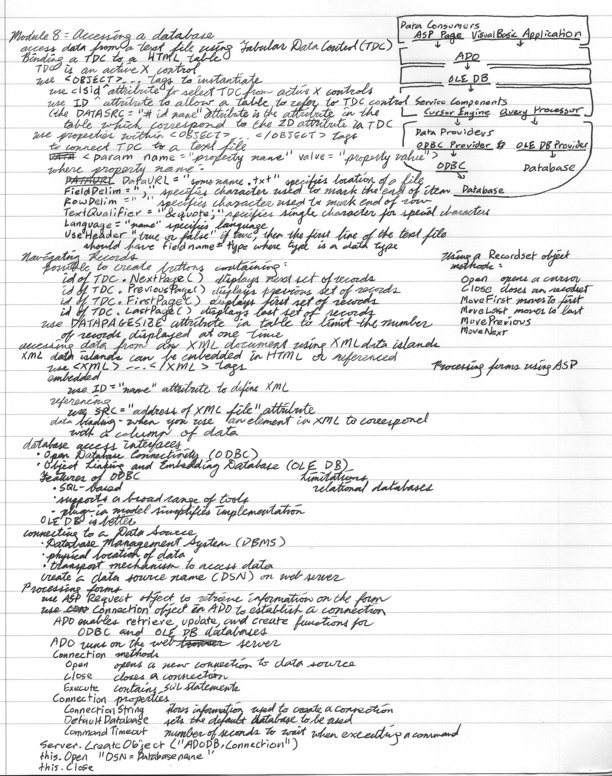 Module 8: Accessing a database
access data from a text file using Tabular Data Control (TDC)
Binding a TDC to a HTML table
TDC is an active X control
use <OBJECT>... tags to instantiate
use clsid attribute to select TDC from active X controls
use ID attribute to allow a table to refer to TDC control
(the DATASRC = "# id name" attribute is the attribute in the
table which correspond to the ID attribute in TDC
use properties within <OBJECT> ... </OBJECT> tags
to connect TDC to a text file
<param name = "property name" value = "property value">
where property name -
DataURL = "some name .txt" specifies location of a file
FieldDelim = "," specifies character used to mark the end of item
RowDelim = ";" specifies character used to mark end of row
TextQualifier = "&quote;" specifies single character for special characters
Language = "name" specifies language
UseHeader "true or false" if true then the first line of the text file
should have fieldname = type where type is a data type
Data Consumers
ASP Page Visual Basic Application
ADO
OLE DB
Service Components
Cursor Engine Query Processor
Data Providers
ODBC Provider & OLE DB Provider
ODBC
Database
Database
Navigating Records
possible to create buttons containing:
id of TDC . NextPage() displays next set of records
id of TDC . PreviousPage() displays previous set of records
id of TDC . FirstPage() displays first set of records
id of TDC . LastPage() displays last set of records
use DATAPAGESIZE attribute in table to limit the number
of records displayed at one time
accessing data from an XML document using XML data islands
XML data islands can be embedded in HTML or referenced
use <XML> ... </XML> tags
embedded
use ID = "name" attribute to define XML
referencing
use SRC = "address of XML file" attribute
data binding - when you use an element in XML to correspond
with a column of data
Using a Recordset object
methods:
Open opens a cursor
Close closes an recordset
MoveFirst moves to first
MoveLast moves to last
MovePrevious
MoveNext
Processing forms using ASP
database access interfaces
• Open Database Connectivity (ODBC)
• Object Linking and Embedding Database (OLE DB)
Features of ODBC Limitations
• SQL-based relational databases
• supports a broad range of tools
- plug-in model simplifies implementation
OLE DB is better
connecting to a Data Source
• Database Management System (DBMS)
• physical location of data
• transport mechanism to access data
create a data source name (DSN) on web server
Processing forms
use ASP Request object to retrieve information on the form
use Connection object in ADO to establish a connection
ADO enables retrieve, update, and create functions for
ODBC and OLE DB databases
ADO runs on the web server
Connection methods
Open opens a new connection to data source
Close closes a connection
Execute contains SQL statements
Connection properties
ConnectionString stores information used to create a connection
DefaultDatabase sets the default database to be used
CommandTimeout number of seconds to wait when executing a command
Server.CreateObject ("ADODB.Connection")
this.Open "DSN = Databasename"
this.Close